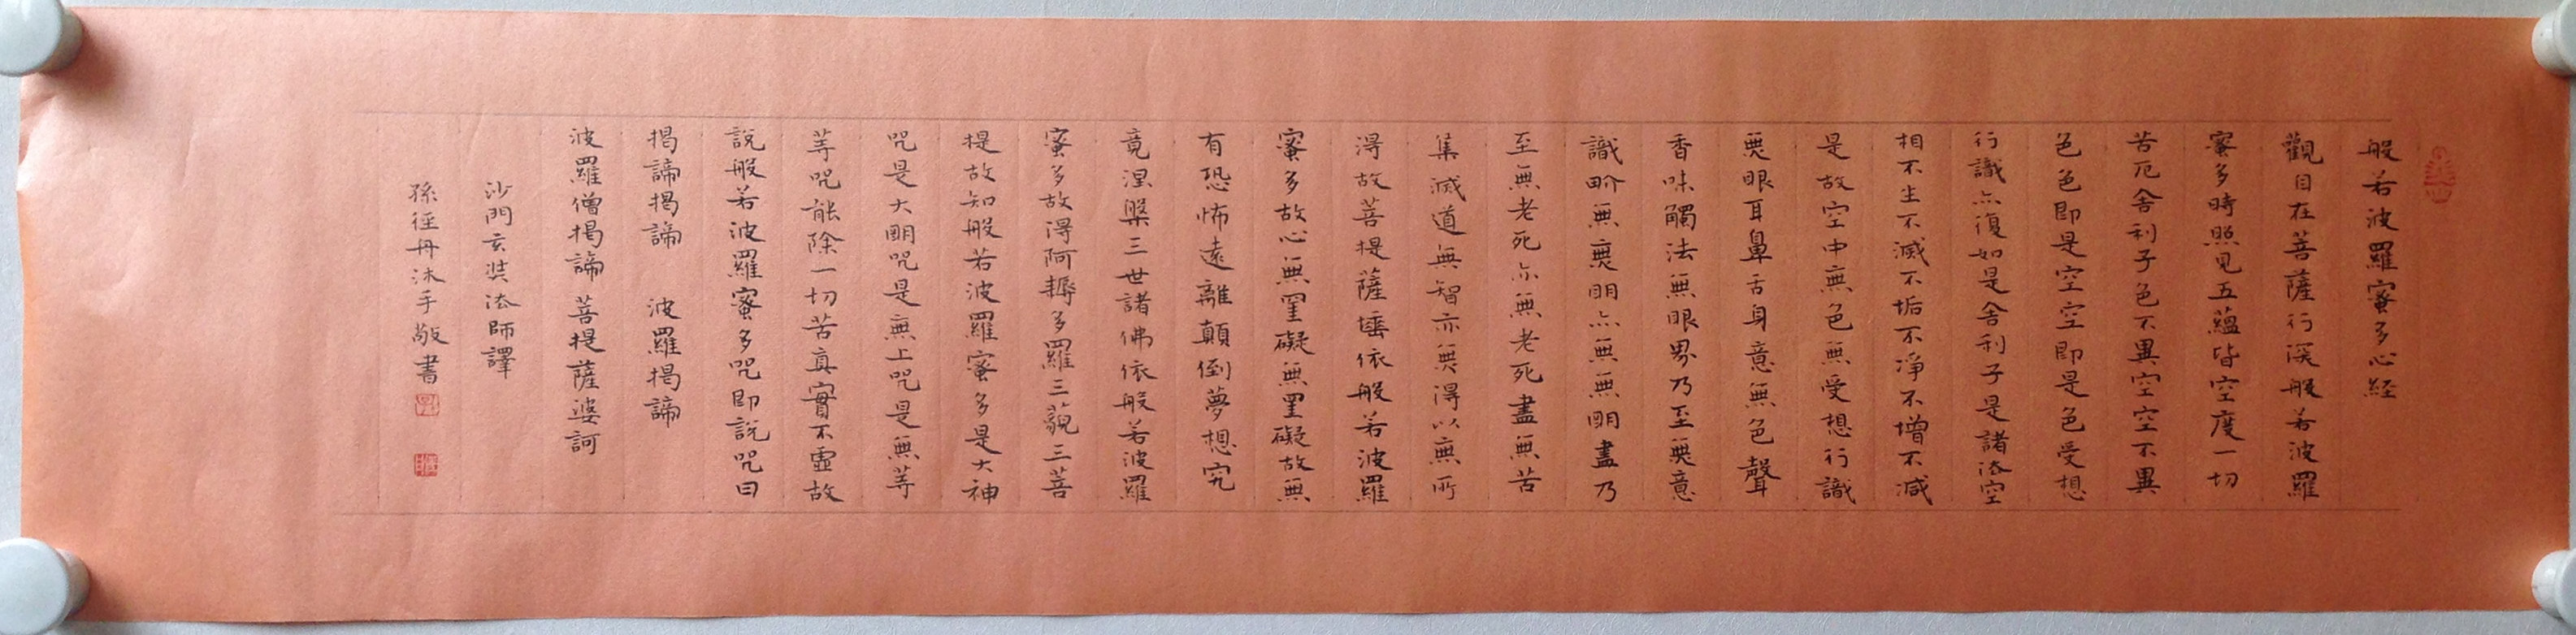 般若波羅蜜多心経
觀自在菩薩行深般若波羅
蜜多時照見五蘊皆空度一切
苦厄舍利子色不異空空不異
色色即是空空即是色受想
行識亦復如是舍利子是諸法空
相不生不滅不垢不淨不增不減
是故空中無色無受想行識
無眼耳鼻舌身意無色聲
香味觸法無眼界乃至無意
識界無無明亦無無明盡乃
至無老死亦無老死盡無苦
集滅道無智亦無得以無所
得故菩提薩埵依般若波羅
蜜多故心無罣礙無罣礙故無
有恐怖遠離顛倒夢想究
竟涅槃三世諸佛依般若波羅
蜜多故得阿耨多羅三藐三菩
提故知般若波羅蜜多是大神
咒是大明咒是無上咒是無等
等咒能除一切苦真實不虛故
說般若波羅蜜多咒即說咒曰
揭諦揭諦 波羅揭諦
波羅僧揭諦 菩提薩婆訶
沙門玄奘法師譯
孫徑丹沐手敬書